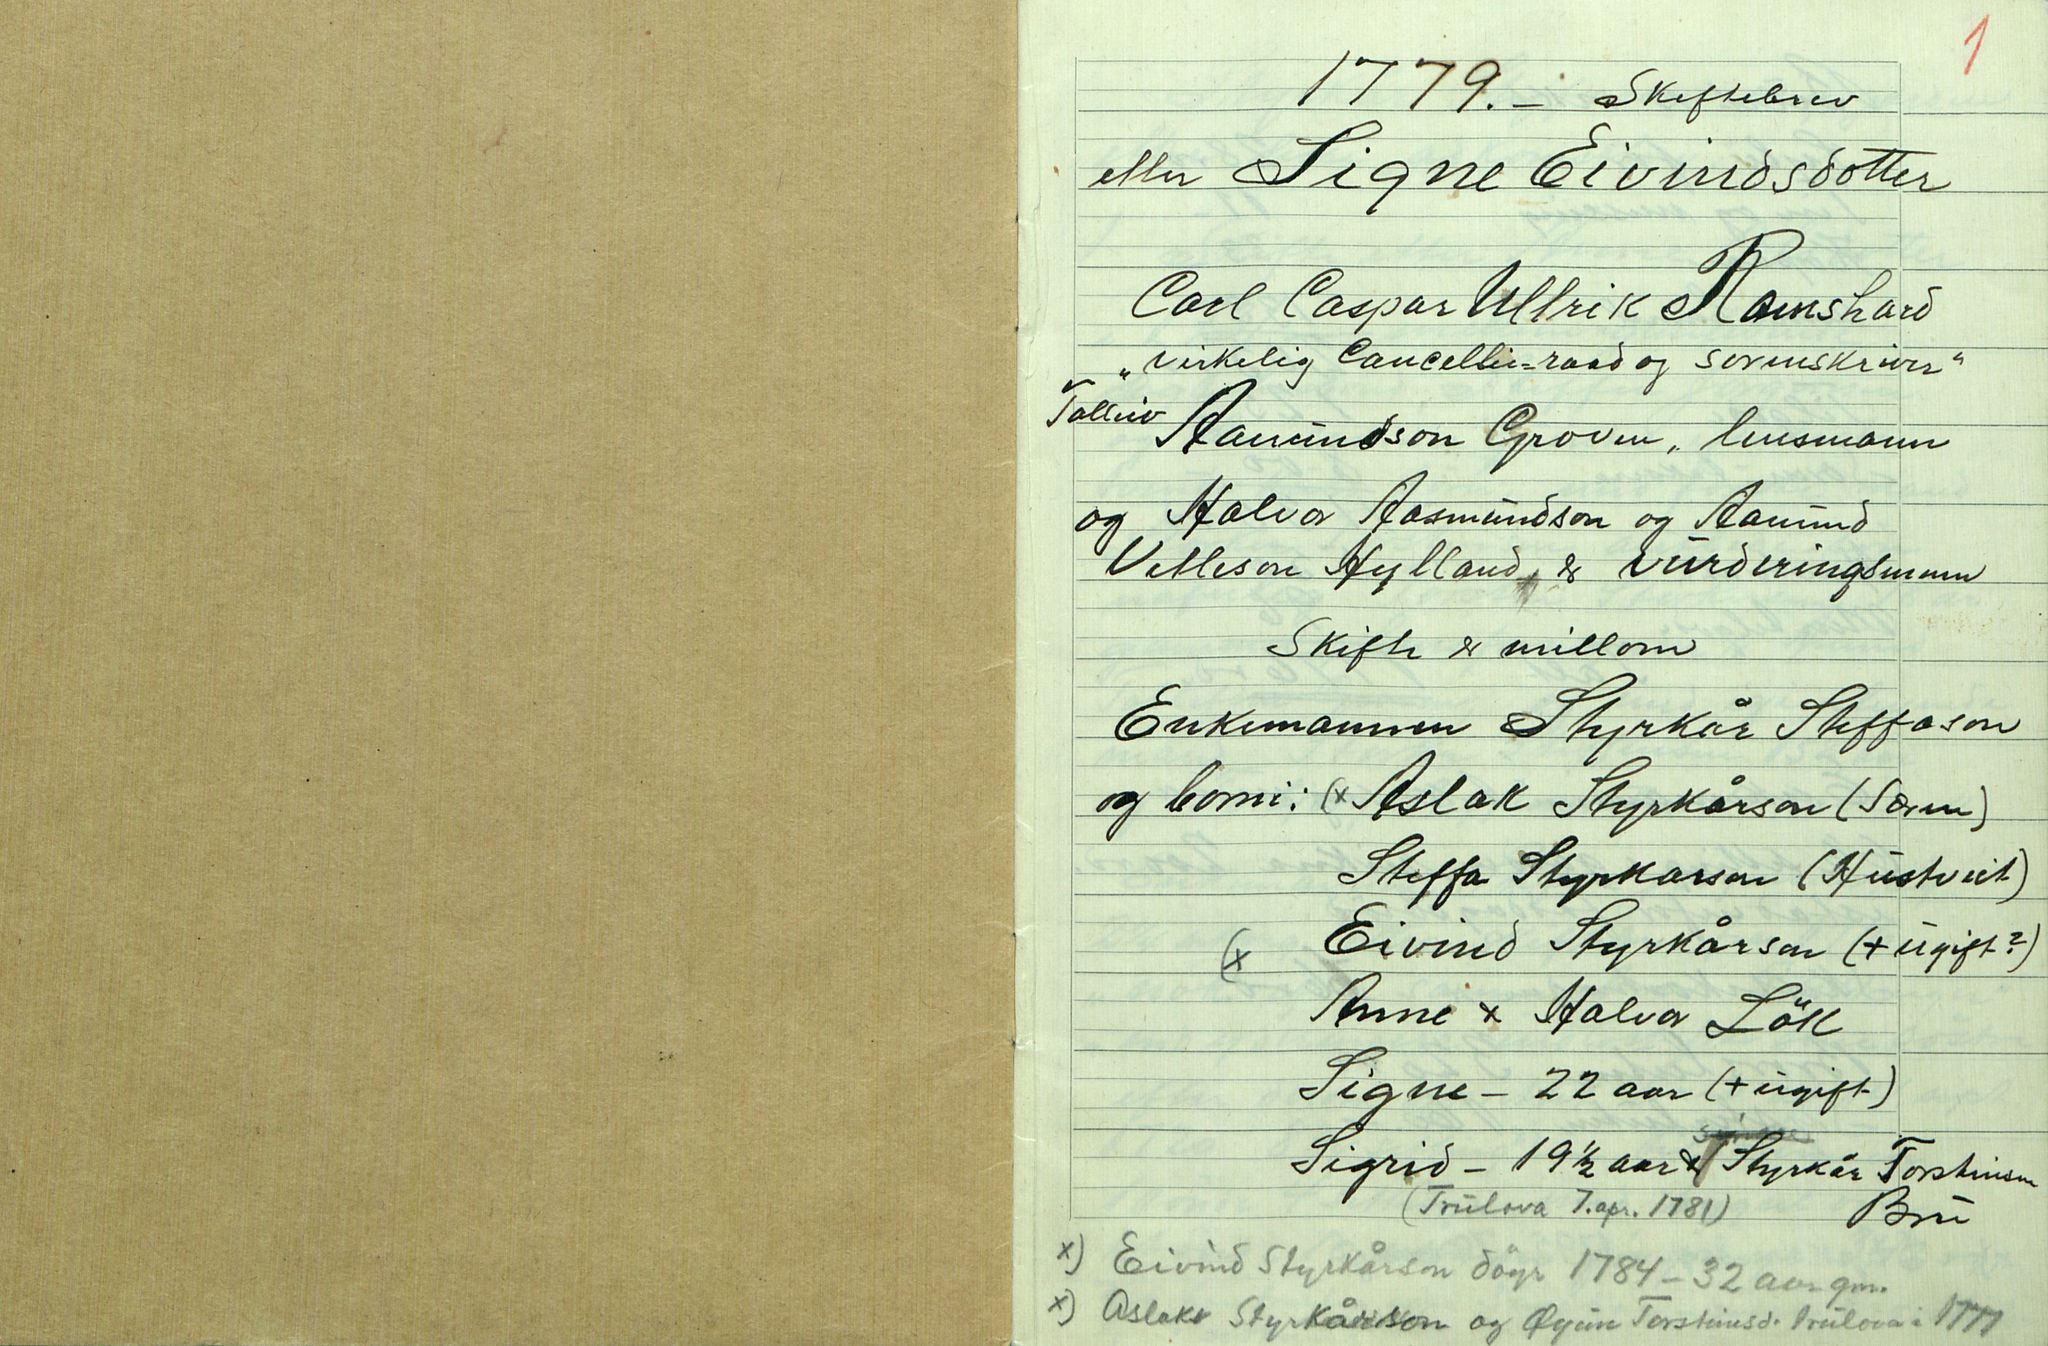 1
1779. – Skeftebrev
etter Signe Eivindsdotter
Carl Caspar Ullrik Ramshard
„virkelig Cancellie=raad og sorenskriver“
Talleiv Aamundson Groven, lensmann
og Halvor Aasmundson og Aamund
Vetleson Hylland, & vurderingsmenn
Skifte er millom
Enkemannen Styrkår Steffason
og borni: (x Aslak Styrkårson (
Steffa Styrkarson (Hustveit)
(x Eivind Styrkårson (+ ugift?)
Anne x Halvor Lök
Signe – 22 aar (+ ugift)
Sigrid – 19½ aar x Styrkår Torsteinson
(Trulova 7. apr. 1781) Bru
x) Eivind Styrkårson döyr 1784 – 32 aar gm.
x) Aslak Styrkårson og Öyün Torsteinsd. trulova i 1777